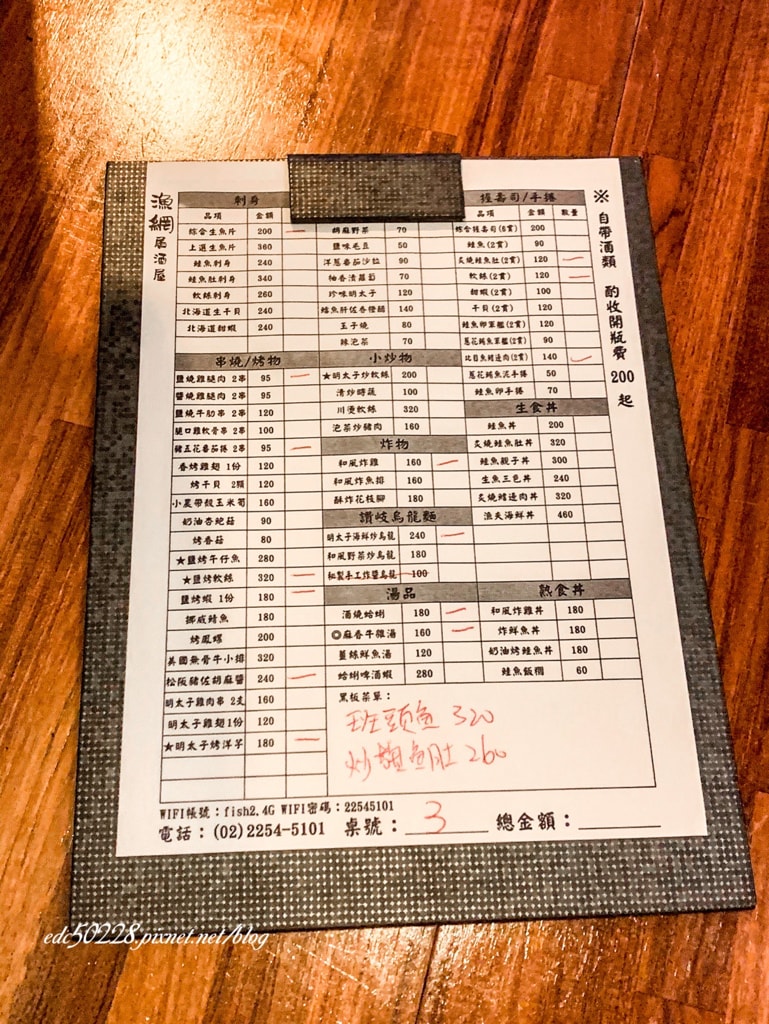 漁網居酒屋
刺身
品項 金額
綜合生魚片 200
上選生魚片 360
鮭魚刺身 240
鮭魚肚刺身 340
軟絲刺身 260
北海道生干貝 240
北海道甜蝦 240
串燒/烤物
鹽燒雞腿肉 2串 95
醬燒雞腿肉 2串 95
鹽燒牛肋串 2串 120
腿口雞軟骨串 2串 100
豬五花番茄捲 2串 95
香烤雞翅 1份 120
烤干貝 2顆 120
小農帶殼玉米筍 160
奶油杏鮑菇 90
烤香菇 80
★鹽烤午仔魚 280
★鹽烤軟絲 320
鹽烤蝦 1份 180
挪威鯖魚 180
烤鳳螺 200
美國無骨牛小排 320
松阪豬佐胡麻醬 240
明太子雞肉串 2支 160
明太子雞翅1份 120
★明太子烤洋芋 180
胡麻野菜 70
鹽味毛豆 50
洋蔥番茄沙拉 90
柚香漬蘿蔔 70
珍味明太子 120
鱈魚肝佐香橙醋 140
玉子燒 80
辣泡菜 70
小炒物
★明太子炒軟絲 200
清炒時蔬 100
川燙軟絲 320
泡菜炒豬肉 160
炸物
和風炸雞 160
和風炸魚排 160
酥炸花枝腳 180
讚岐烏龍麵
明太子海鮮炒烏龍 240
和風野菜炒烏龍 180
秘製手工炸醬烏龍 100
湯品
酒燒蛤蜊 180
◎麻香牛雜湯 160
薑絲鮮魚湯 120
蛤蜊啤酒蝦 280
握壽司/手捲
品項 金額 數量
綜合握壽司(6貫) 200
鮭魚(2貫) 90
炙燒鮭魚肚(2貫) 120
軟絲(2貫) 120
甜蝦(2貫) 100
干貝(2貫) 120
鮭魚卵軍艦(2貫) 120
蔥花鮪魚軍艦(2貫) 90
比目魚鰭邊肉(2貫) 140
蔥花鮪魚泥手捲 50
鮭魚卵手捲 70
生食丼
鮭魚丼 200
炙燒鮭魚肚丼 320
鮭魚親子丼 300
生魚三色丼 240
炙燒鰭邊肉丼 320
漁夫海鮮丼 460
熟食丼
和風炸雞丼 180
炸鮮魚丼 180
奶油烤鮭魚丼 180
鮭魚飯糰 60
※自帶酒類 酌收開瓶費200起
黑板菜單：
班頭魚 320
炒 魚肚 260
WIFI帳號：fish2.4G WIFI密碼：22545101
電話：(02)2254-5101 桌號：3 總金額：
edc50228.pixnet.net/blog